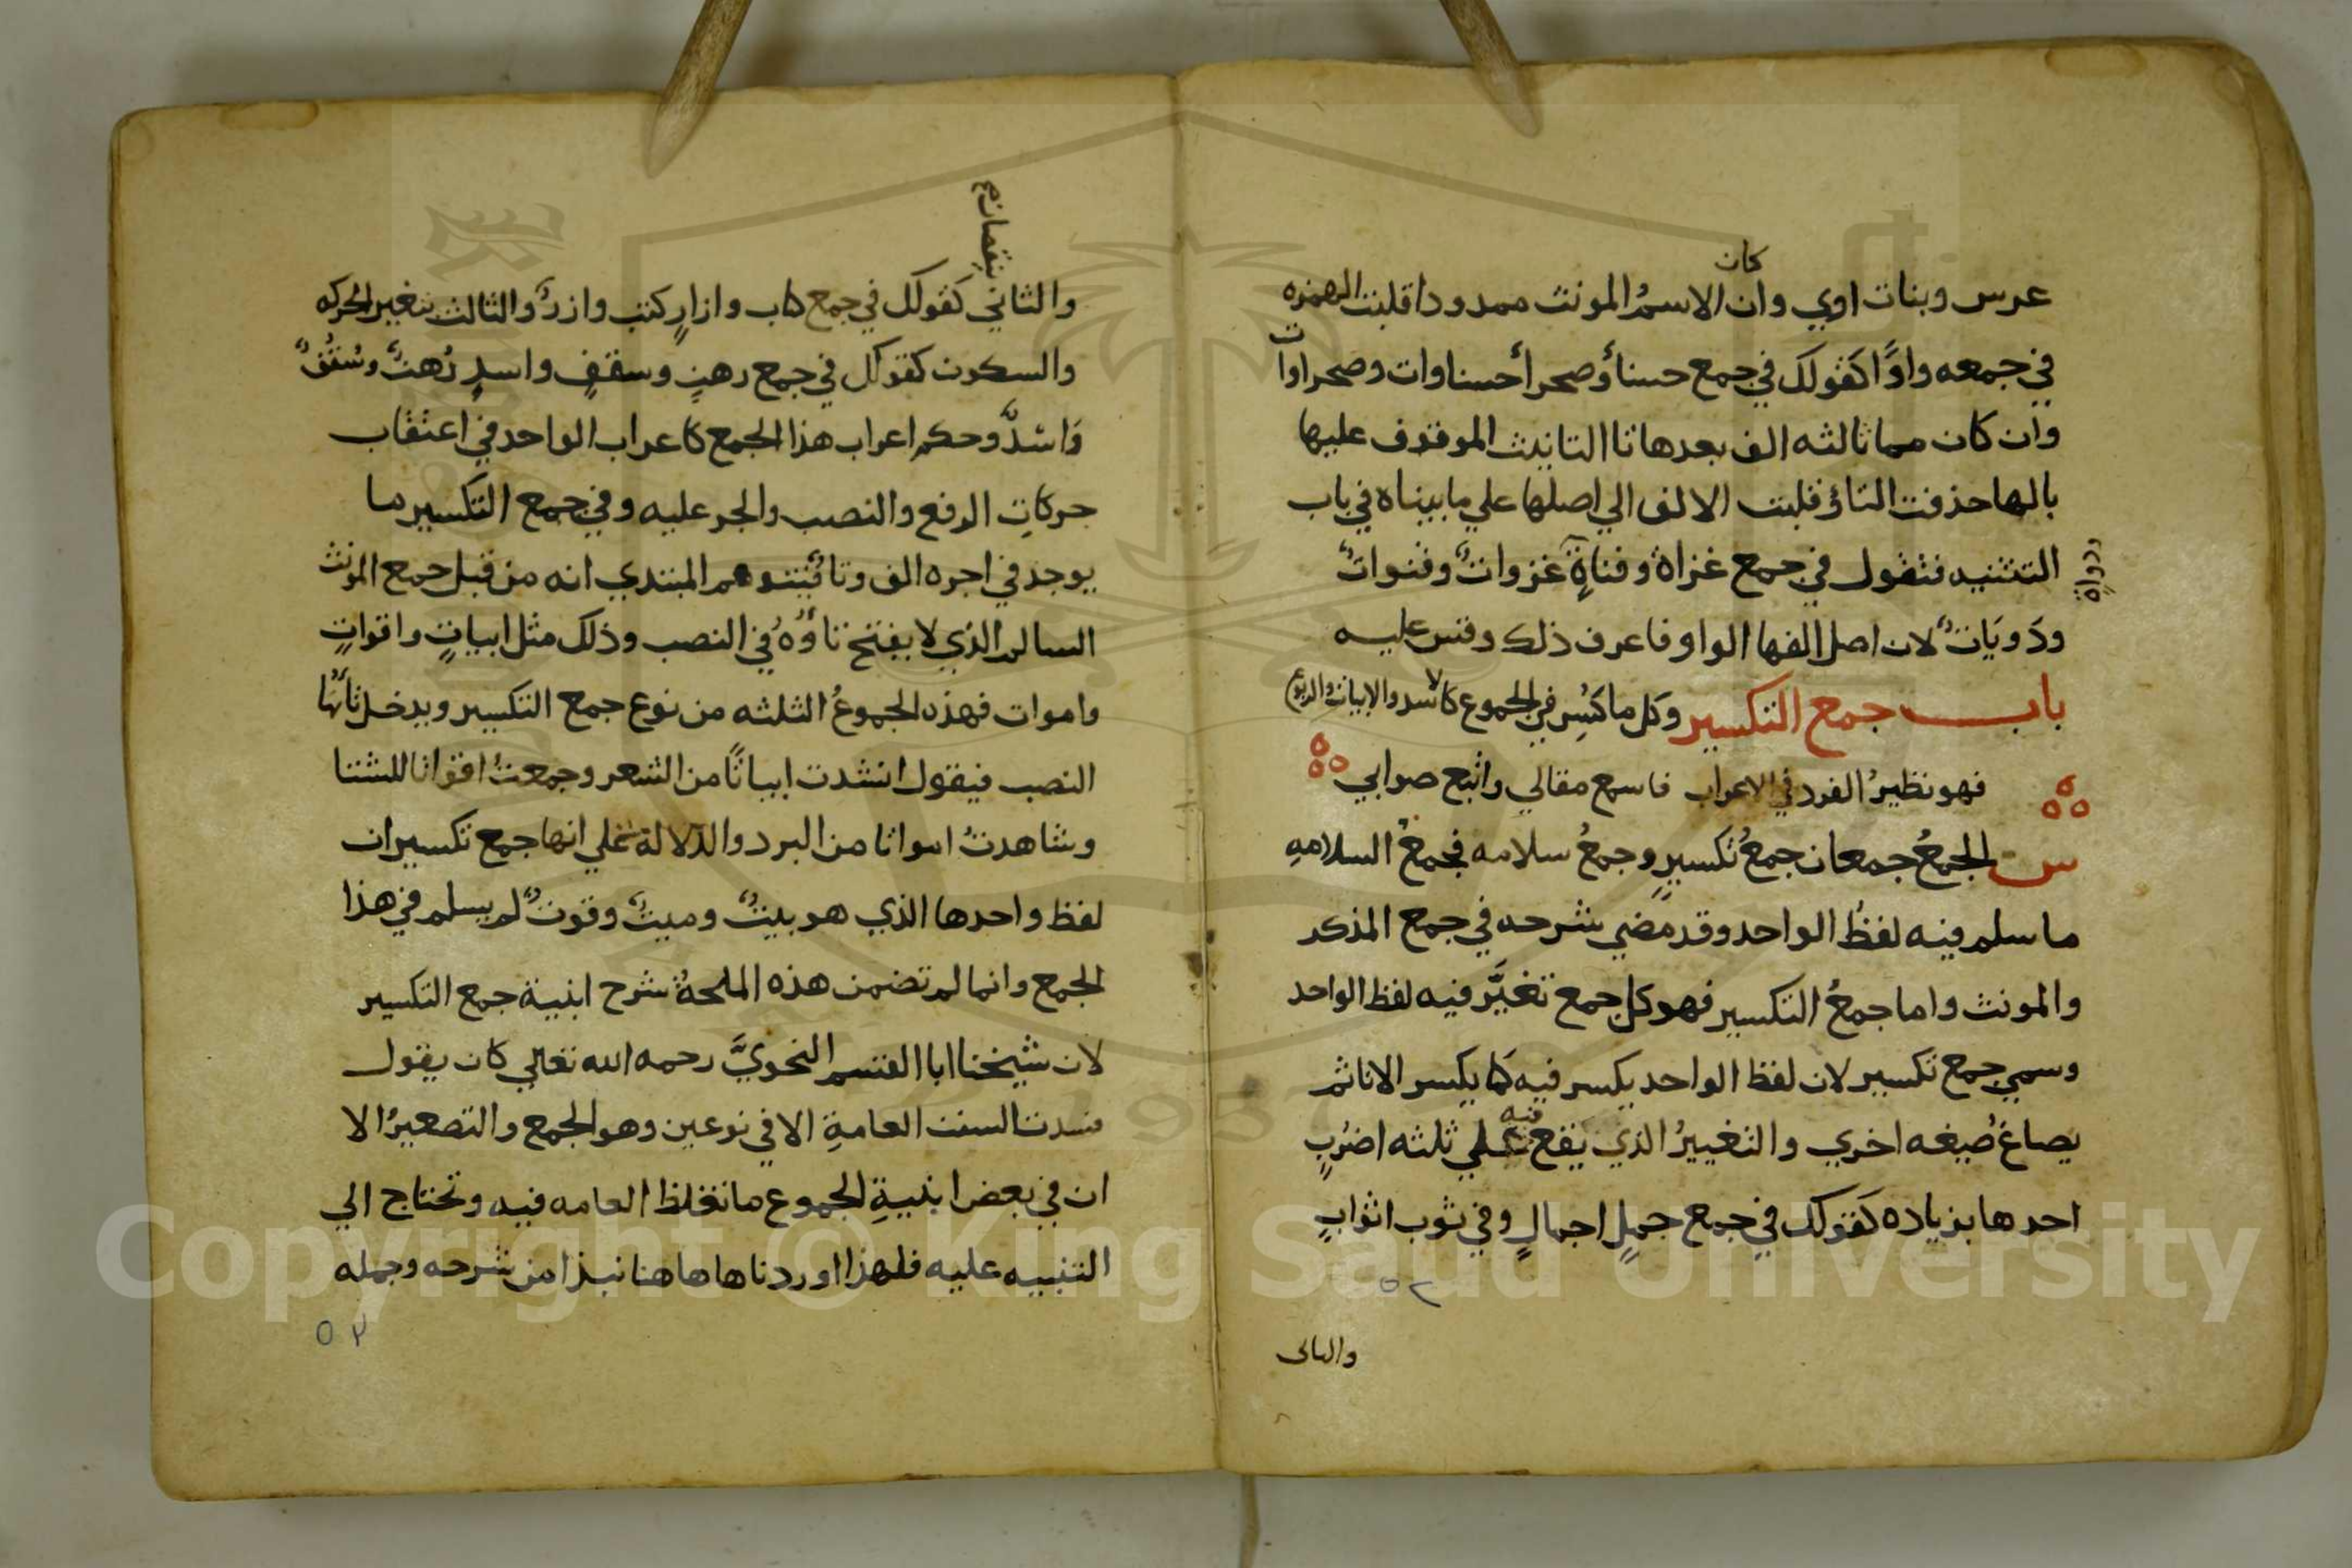 كان
عرس وبنات اوي وان الاسمُ المونث ممدودا قلبت الهمزه
في جمعه واوًا كقولك في جمع حسنأ وصحرأ حسناوات وصحراوات
وان كان مما ثالثه الف بعدها تا التانيث الموقوف عليها
بالها حذفت التاؤ قلبت الالف الي اصلها علي ما بيناه في باب
التثنيه فتقول في جمع غزاة وقناةٍ غزواتٌ وقنواتٌ
ودَويَاتٌ لان اصل الفها الواو فاعرف ذلك وقس عليه
باب جمع التكسير وكل ما كُسِر في الجموع كالاسد والابياتِ والربوع
فهو نظيرُ الفرد في الاعراب فاسمع مقالي واتبع صوابي
س الجمعُ جمعان جمعُ تكسيرٍ وجمعُ سلامه فجمعُ السلامهِ
ما سلم فيه لفظُ الواحد وقد مضي شرحه في جمع المذكر
والمونث واما جمعُ التكسير فهو كل جمع تغيَّر فيه لفظ الواحد
وسمي جمع تكسير لان لفظ الواحد يكسر فيه كما يكسر الانا ثم
يصاغ صُيغه اخري والتغييرُ الذي يقع فيه علي ثلثه اضرُبٍ
احدها بزياده كقولك في جمع جملٍ اجمالٍ وفي ثوب اثوابٍ
٥٢
والثانى
بنقصان
والثاني كقولك في جمع كتاب وازارٍ كتب وازرٌ والثالث بتغير الحركه
والسكون كقولك في جمع رهنٍ وسقفٍ واسدٍ رُهنٌ وسُقُفٌ
وَاسْدٌ وحكم اعراب هذا الجمع كاعراب الواحد في اعتقاب
حركاتِ الرفع والنصب والجر عليه وفي جمع التكسير ما
يوجد في اخره الف وتا فيتوهم المبتدي انه من قبل جمع المونث
السالم الذي لا يفتح تاؤُهُ في النصب وذلك مثل ابياتٍ واقواتٍ
واموات فهذه الجموعُ الثلثه من نوع جمع التكسير ويدخل تأَها
النصب فيقول انشدت ابياتًا من الشعر وجمعتُ اقواتا للشتا
وشاهدتُ امواتا من البرد والدلالة علي انها جمع تكسير ان
لفظ واحدها الذي هو بيتٌ وميتٌ وقوتٌ لم يسلم في هذا
الجمع وانما لم تضمن هذه الملحةُ شرح ابنية جمع التكسير
لان شيخنا ابا القسم النحويَّ رحمه الله تعالي كان يقول
فسدت السنت العامةِ الا في نوعين وهو الجمع والتصغيرُ الا
ان في بعض ابنيةِ الجموع ما تغلظ العامه فيه وتحتاج الي
التنبيه عليه فلهذا اوردنا ها هاهنا نبذا من شرحه وجمله
٥٢
Copyright © King Saud University
1957